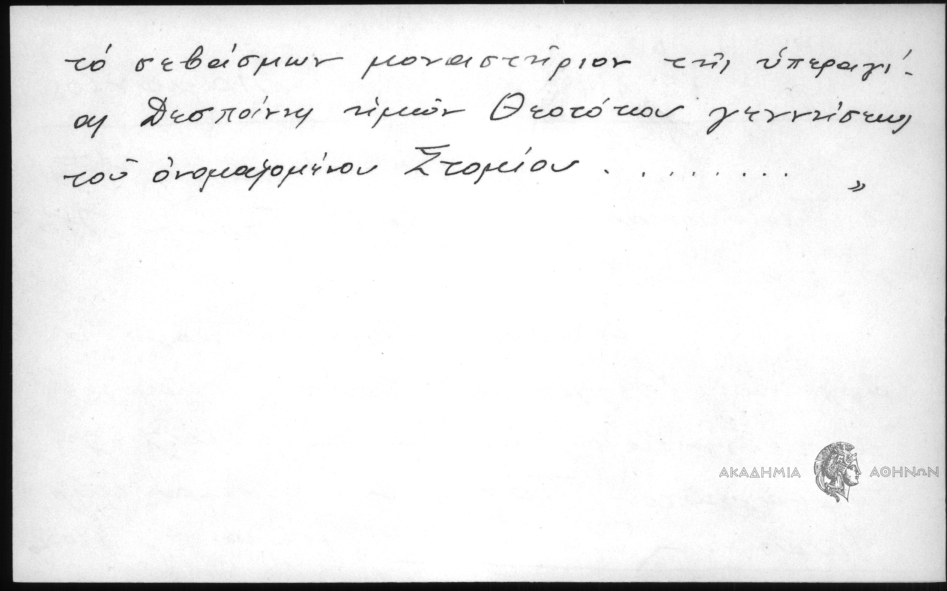 τό σεβάσμιων μοναστήριον τῆς ὑπεραγί-
ας Δεσποίνης ἡμῶν Θεοτόκου γεννήσεως
τοῦ ὀνομαζομένου Στομίου . . . . . . . . »
ΑΚΑΔΗΜΙΑ ΑΘΗΝΩΝ